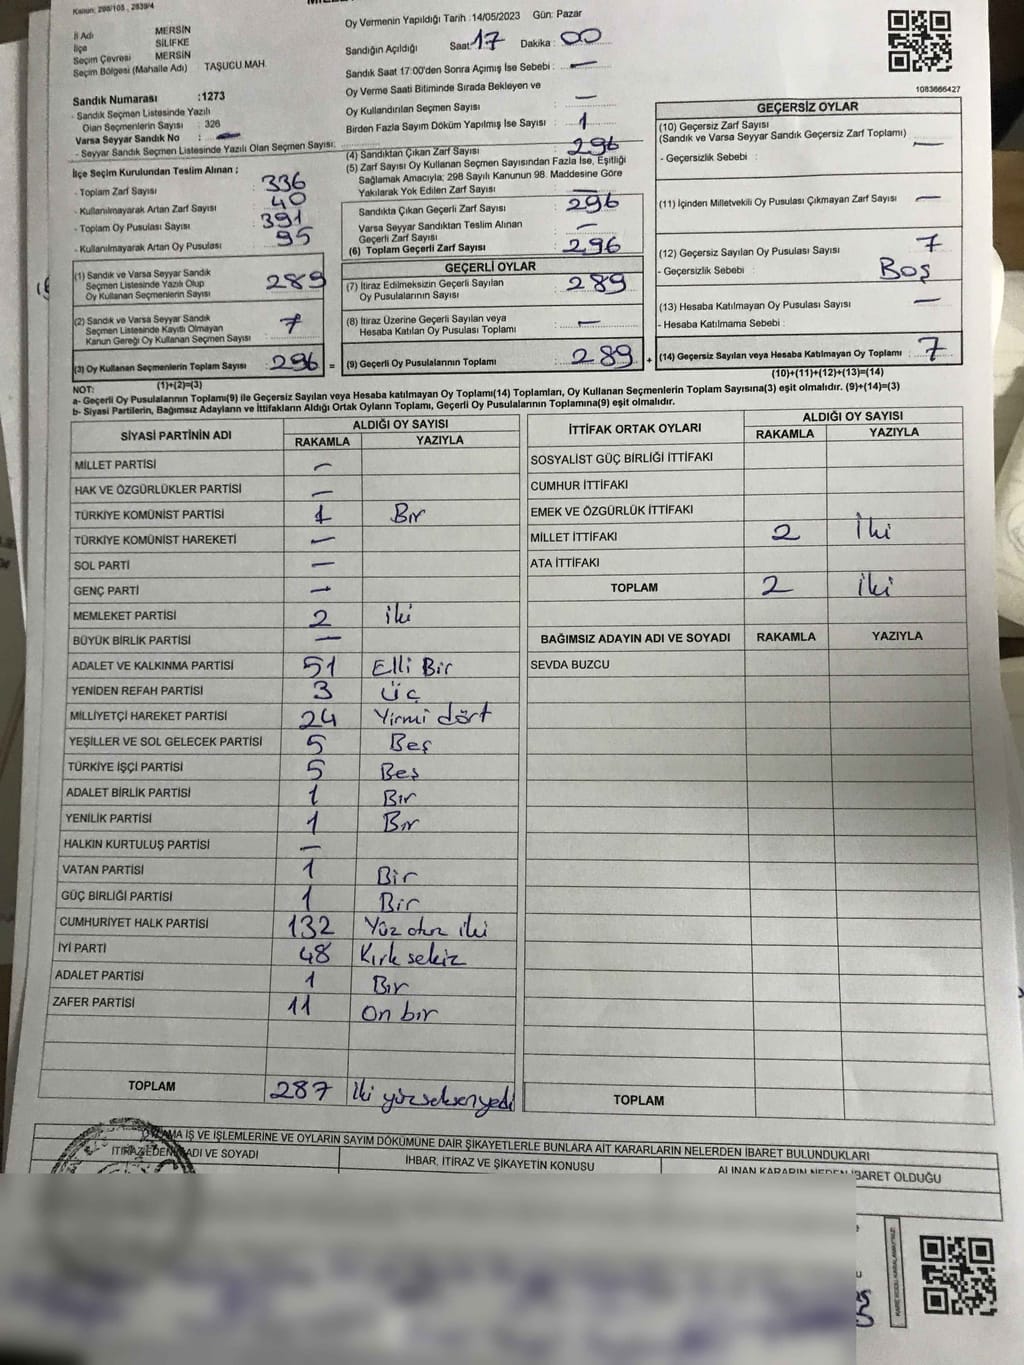 Kanun: 298/105, 2839/4
İl Adı MERSİN
İlçe SİLİFKE
Seçim Çevresi MERSİN
Seçim Bölgesi (Mahalle Adı) TAŞUCU MAH.
Sandık Numarası :1273
- Sandık Seçmen Listesinde Yazılı
Olan Seçmenlerin Sayısı : 326
Varsa Seyyar Sandık No : —
- Seyyar Sandık Seçmen Listesinde Yazılı Olan Seçmen Sayısı:
İlçe Seçim Kurulundan Teslim Alınan ;
- Toplam Zarf Sayısı 336
- Kullanılmayarak Artan Zarf Sayısı 40
- Toplam Oy Pusulası Sayısı 391
- Kullanılmayarak Artan Oy Pusulası 95
(1) Sandık ve Varsa Seyyar Sandık
Seçmen Listesinde Yazılı Olup
Oy Kullanan Seçmenlerin Sayısı 289
(2) Sandık ve Varsa Seyyar Sandık
Seçmen Listesinde Kayıtlı Olmayan
Kanun Gereği Oy Kullanan Seçmen Sayısı : 7
(3) Oy Kullanan Seçmenlerin Toplam Sayısı : 296 =
(1)+(2)=(3)
Oy Vermenin Yapıldığı Tarih :14/05/2023 Gün: Pazar
Sandığın Açıldığı Saat: 17 Dakika : 00
Sandık Saat 17:00'den Sonra Açımış İse Sebebi : —
Oy Verme Saati Bitiminde Sırada Bekleyen ve
Oy Kullandırılan Seçmen Sayısı : —
Birden Fazla Sayım Döküm Yapılmış İse Sayısı : 1
(4) Sandıktan Çıkan Zarf Sayısı : 296
(5) Zarf Sayısı Oy Kullanan Seçmen Sayısından Fazla İse, Eşitliği
Sağlamak Amacıyla; 298 Sayılı Kanunun 98. Maddesine Göre
Yakılarak Yok Edilen Zarf Sayısı : —
Sandıkta Çıkan Geçerli Zarf Sayısı : 296
Varsa Seyyar Sandıktan Teslim Alınan
Geçerli Zarf Sayısı : —
(6) Toplam Geçerli Zarf Sayısı : 296
GEÇERLİ OYLAR
(7) İtiraz Edilmeksizin Geçerli Sayılan
Oy Pusulalarının Sayısı : 289
(8) İtiraz Üzerine Geçerli Sayılan veya
Hesaba Katılan Oy Pusulası Toplamı : —
(9) Geçerli Oy Pusulalarının Toplamı : 289 +
1083666427
GEÇERSİZ OYLAR
(10) Geçersiz Zarf Sayısı
(Sandık ve Varsa Seyyar Sandık Geçersiz Zarf Toplamı) —
- Geçersizlik Sebebi :
(11) İçinden Milletvekili Oy Pusulası Çıkmayan Zarf Sayısı : —
(12) Geçersiz Sayılan Oy Pusulası Sayısı : 7
- Geçersizlik Sebebi : Boş
(13) Hesaba Katılmayan Oy Pusulası Sayısı : —
- Hesaba Katılmama Sebebi :
(14) Geçersiz Sayılan veya Hesaba Katılmayan Oy Toplamı : 7
(10)+(11)+(12)+(13)=(14)
NOT:
a- Geçerli Oy Pusulalarının Toplamı(9) ile Geçersiz Sayılan veya Hesaba katılmayan Oy Toplamı(14) Toplamları, Oy Kullanan Seçmenlerin Toplam Sayısına(3) eşit olmalıdır. (9)+(14)=(3)
b- Siyasi Partilerin, Bağımsız Adayların ve İttifakların Aldığı Ortak Oyların Toplamı, Geçerli Oy Pusulalarının Toplamına(9) eşit olmalıdır.
SİYASİ PARTİNİN ADI ALDIĞI OY SAYISI
RAKAMLA YAZIYLA
MİLLET PARTİSİ —
HAK VE ÖZGÜRLÜKLER PARTİSİ —
TÜRKİYE KOMÜNİST PARTİSİ 1 Bir
TÜRKİYE KOMÜNİST HAREKETİ —
SOL PARTİ —
GENÇ PARTİ —
MEMLEKET PARTİSİ 2 iki
BÜYÜK BİRLİK PARTİSİ —
ADALET VE KALKINMA PARTİSİ 51 Elli Bir
YENİDEN REFAH PARTİSİ 3 üç
MİLLİYETÇİ HAREKET PARTİSİ 24 Yirmi dört
YEŞİLLER VE SOL GELECEK PARTİSİ 5 Beş
TÜRKİYE İŞÇİ PARTİSİ 5 Beş
ADALET BİRLİK PARTİSİ 1 Bir
YENİLİK PARTİSİ 1 Bir
HALKIN KURTULUŞ PARTİSİ —
VATAN PARTİSİ 1 Bir
GÜÇ BİRLİĞİ PARTİSİ 1 Bir
CUMHURİYET HALK PARTİSİ 132 Yüz otuz iki
İYİ PARTİ 48 Kırk sekiz
ADALET PARTİSİ 1 Bir
ZAFER PARTİSİ 11 On bir
TOPLAM 287 İki yüz seksen yedi
İTTİFAK ORTAK OYLARI ALDIĞI OY SAYISI
RAKAMLA YAZIYLA
SOSYALİST GÜÇ BİRLİĞİ İTTİFAKI
CUMHUR İTTİFAKI
EMEK VE ÖZGÜRLÜK İTTİFAKI
MİLLET İTTİFAKI 2 İki
ATA İTTİFAKI
TOPLAM 2 iki
BAĞIMSIZ ADAYIN ADI VE SOYADI RAKAMLA YAZIYLA
SEVDA BUZCU
TOPLAM
AMA İŞ VE İŞLEMLERİNE VE OYLARIN SAYIM DÖKÜMÜNE DAİR ŞİKAYETLERLE BUNLARA AİT KARARLARIN NELERDEN İBARET BULUNDUKLARI
İTİRAZ EDENİN ADI VE SOYADI
İHBAR, İTİRAZ VE ŞİKAYETİN KONUSU
ALINAN KARARIN NEDEN İBARET OLDUĞU